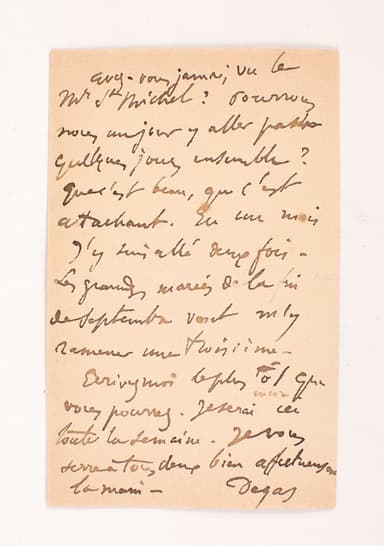 avez-vous jamais vu le
Mt St Michel? Pourrons
nous un jour y aller passer
quelques jours ensemble?
que c'est beau, que c'est
attachant. En un mois
j'y suis allé deux fois -
Les grandes marées de la fin
de Septembre vont m'y
ramener une troisième -
Ecrivez moi le plus tôt que
vous pourrez. Je serai ici
toute la semaine. Je vous
serre à tous deux bien affectueusement
la main -     Degas